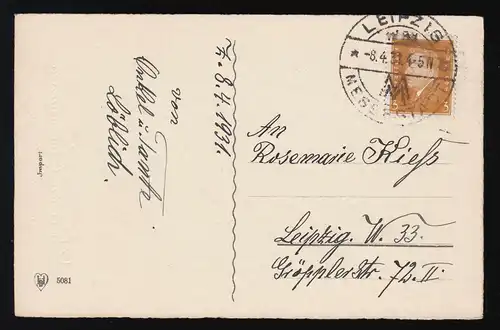 LEIPZIG
* -8.4.31.4-5N
MM
MESSESTADT
3
Z. 8.4.1931.
von
Onkel u. Tante
Löblich.
An
Rosemarie Kiess
Leipzig. W. 33.
Gröpplerstr. 72. II.
Import
5081